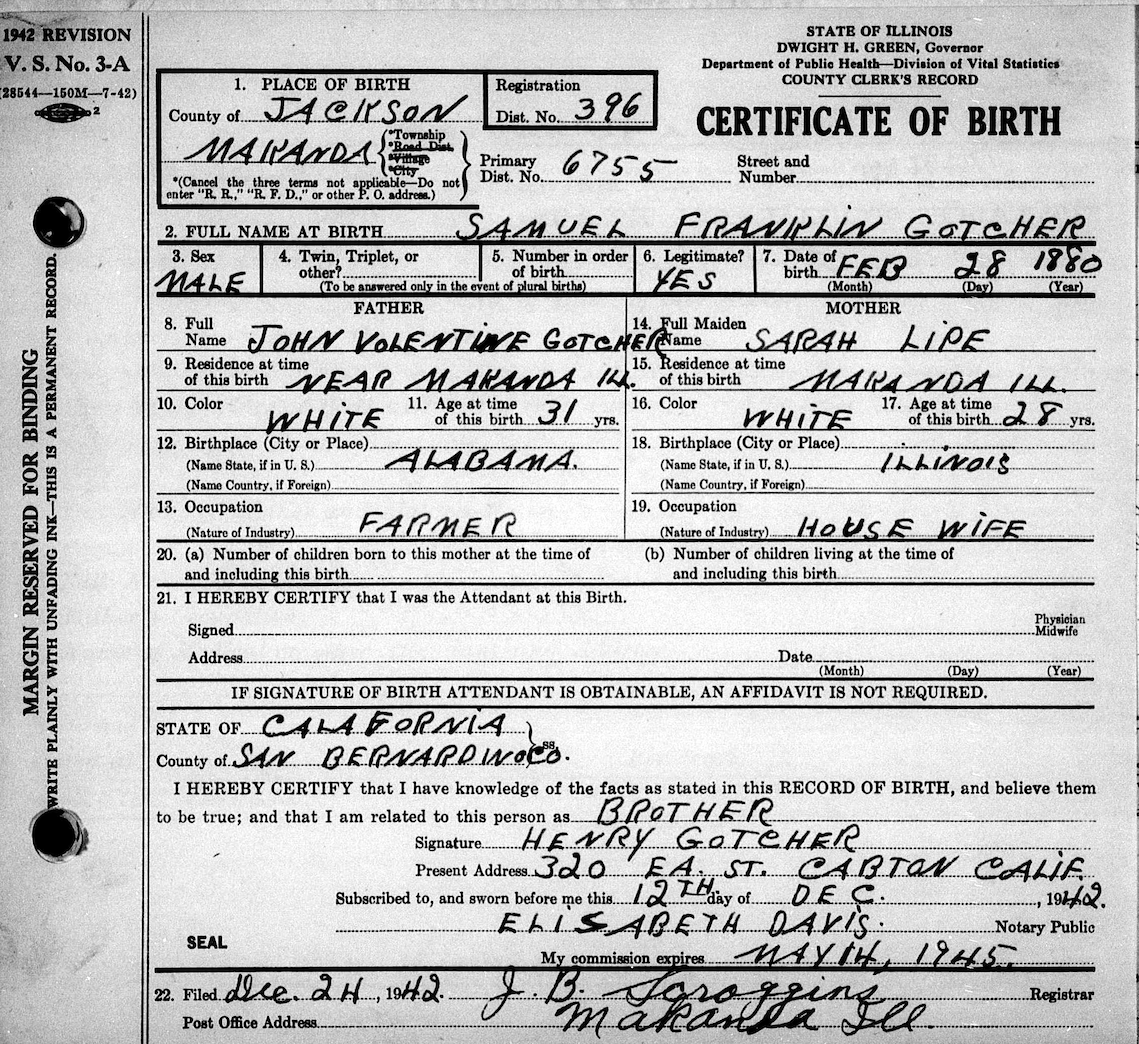 1942 REVISION
V. S. No. 3-A
(28544—150M—7-42)
2
MARGIN RESERVED FOR BINDING
WRITE PLAINLY WITH UNFADING INK—THIS IS A PERMANENT RECORD.
STATE OF ILLINOIS
DWIGHT H. GREEN, Governor
Department of Public Health—Division of Vital Statistics
COUNTY CLERK'S RECORD
CERTIFICATE OF BIRTH
1. PLACE OF BIRTH
County of JACKSON
Registration
Dist. No. 396
MAKANDA
*Township
*Road Dist.
*Village
*City
*(Cancel the three terms not applicable—Do not
enter "R. R.," "R. F. D.," or other P. O. address.)
Primary
Dist. No. 6755
Street and
Number
2. FULL NAME AT BIRTH SAMUEL FRANKLIN GOTCHER
3. Sex
MALE
4. Twin, Triplet, or
other?
5. Number in order
of birth
(To be answered only in the event of plural births)
6. Legitimate?
YES
7. Date of
birth FEB 28 1880
(Month) (Day) (Year)
FATHER
8. Full
Name JOHN VOLENTINE GOTCHER
9. Residence at time
of this birth NEAR MAKANDA ILL.
10. Color WHITE
11. Age at time
of this birth 31 yrs.
12. Birthplace (City or Place)
(Name State, if in U. S.) ALABAMA.
(Name Country, if Foreign)
13. Occupation
(Nature of Industry) FARMER
MOTHER
14. Full Maiden
Name SARAH LIPE
15. Residence at time
of this birth MAKANDA ILL.
16. Color WHITE
17. Age at time
of this birth 28 yrs.
18. Birthplace (City or Place)
(Name State, if in U. S.) ILLINOIS
(Name Country, if Foreign)
19. Occupation
(Nature of Industry) HOUSE WIFE
20. (a) Number of children born to this mother at the time of
and including this birth
(b) Number of children living at the time of
and including this birth
21. I HEREBY CERTIFY that I was the Attendant at this Birth.
Signed
Physician
Midwife
Address
Date
(Month) (Day) (Year)
IF SIGNATURE OF BIRTH ATTENDANT IS OBTAINABLE, AN AFFIDAVIT IS NOT REQUIRED.
STATE OF CALAFORNIA
County of SAN BERNARDINO CO. ss.
I HEREBY CERTIFY that I have knowledge of the facts as stated in this RECORD OF BIRTH, and believe them
to be true; and that I am related to this person as BROTHER
Signature HENRY GOTCHER
Present Address 320 EA. ST. CABTON CALIF.
Subscribed to, and sworn before me this 12TH day of DEC. , 1942.
ELISABETH DAVIS. Notary Public
SEAL
My commission expires MAY 14, 1945.
22. Filed Dec. 24 , 1942. J. B. Scroggins Registrar
Post Office Address Makanda Ill.